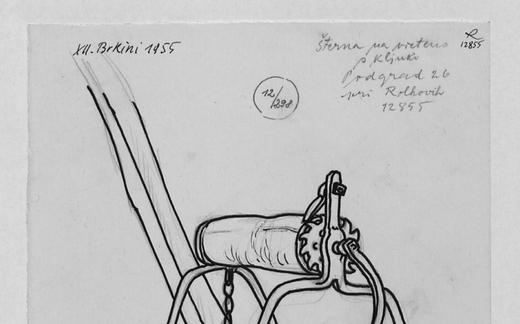 XII. Brkini 1955
R
12855
Šterna na vreteno
s kljuko
Podgrad 26
pri Rolkovih
12855
12/298